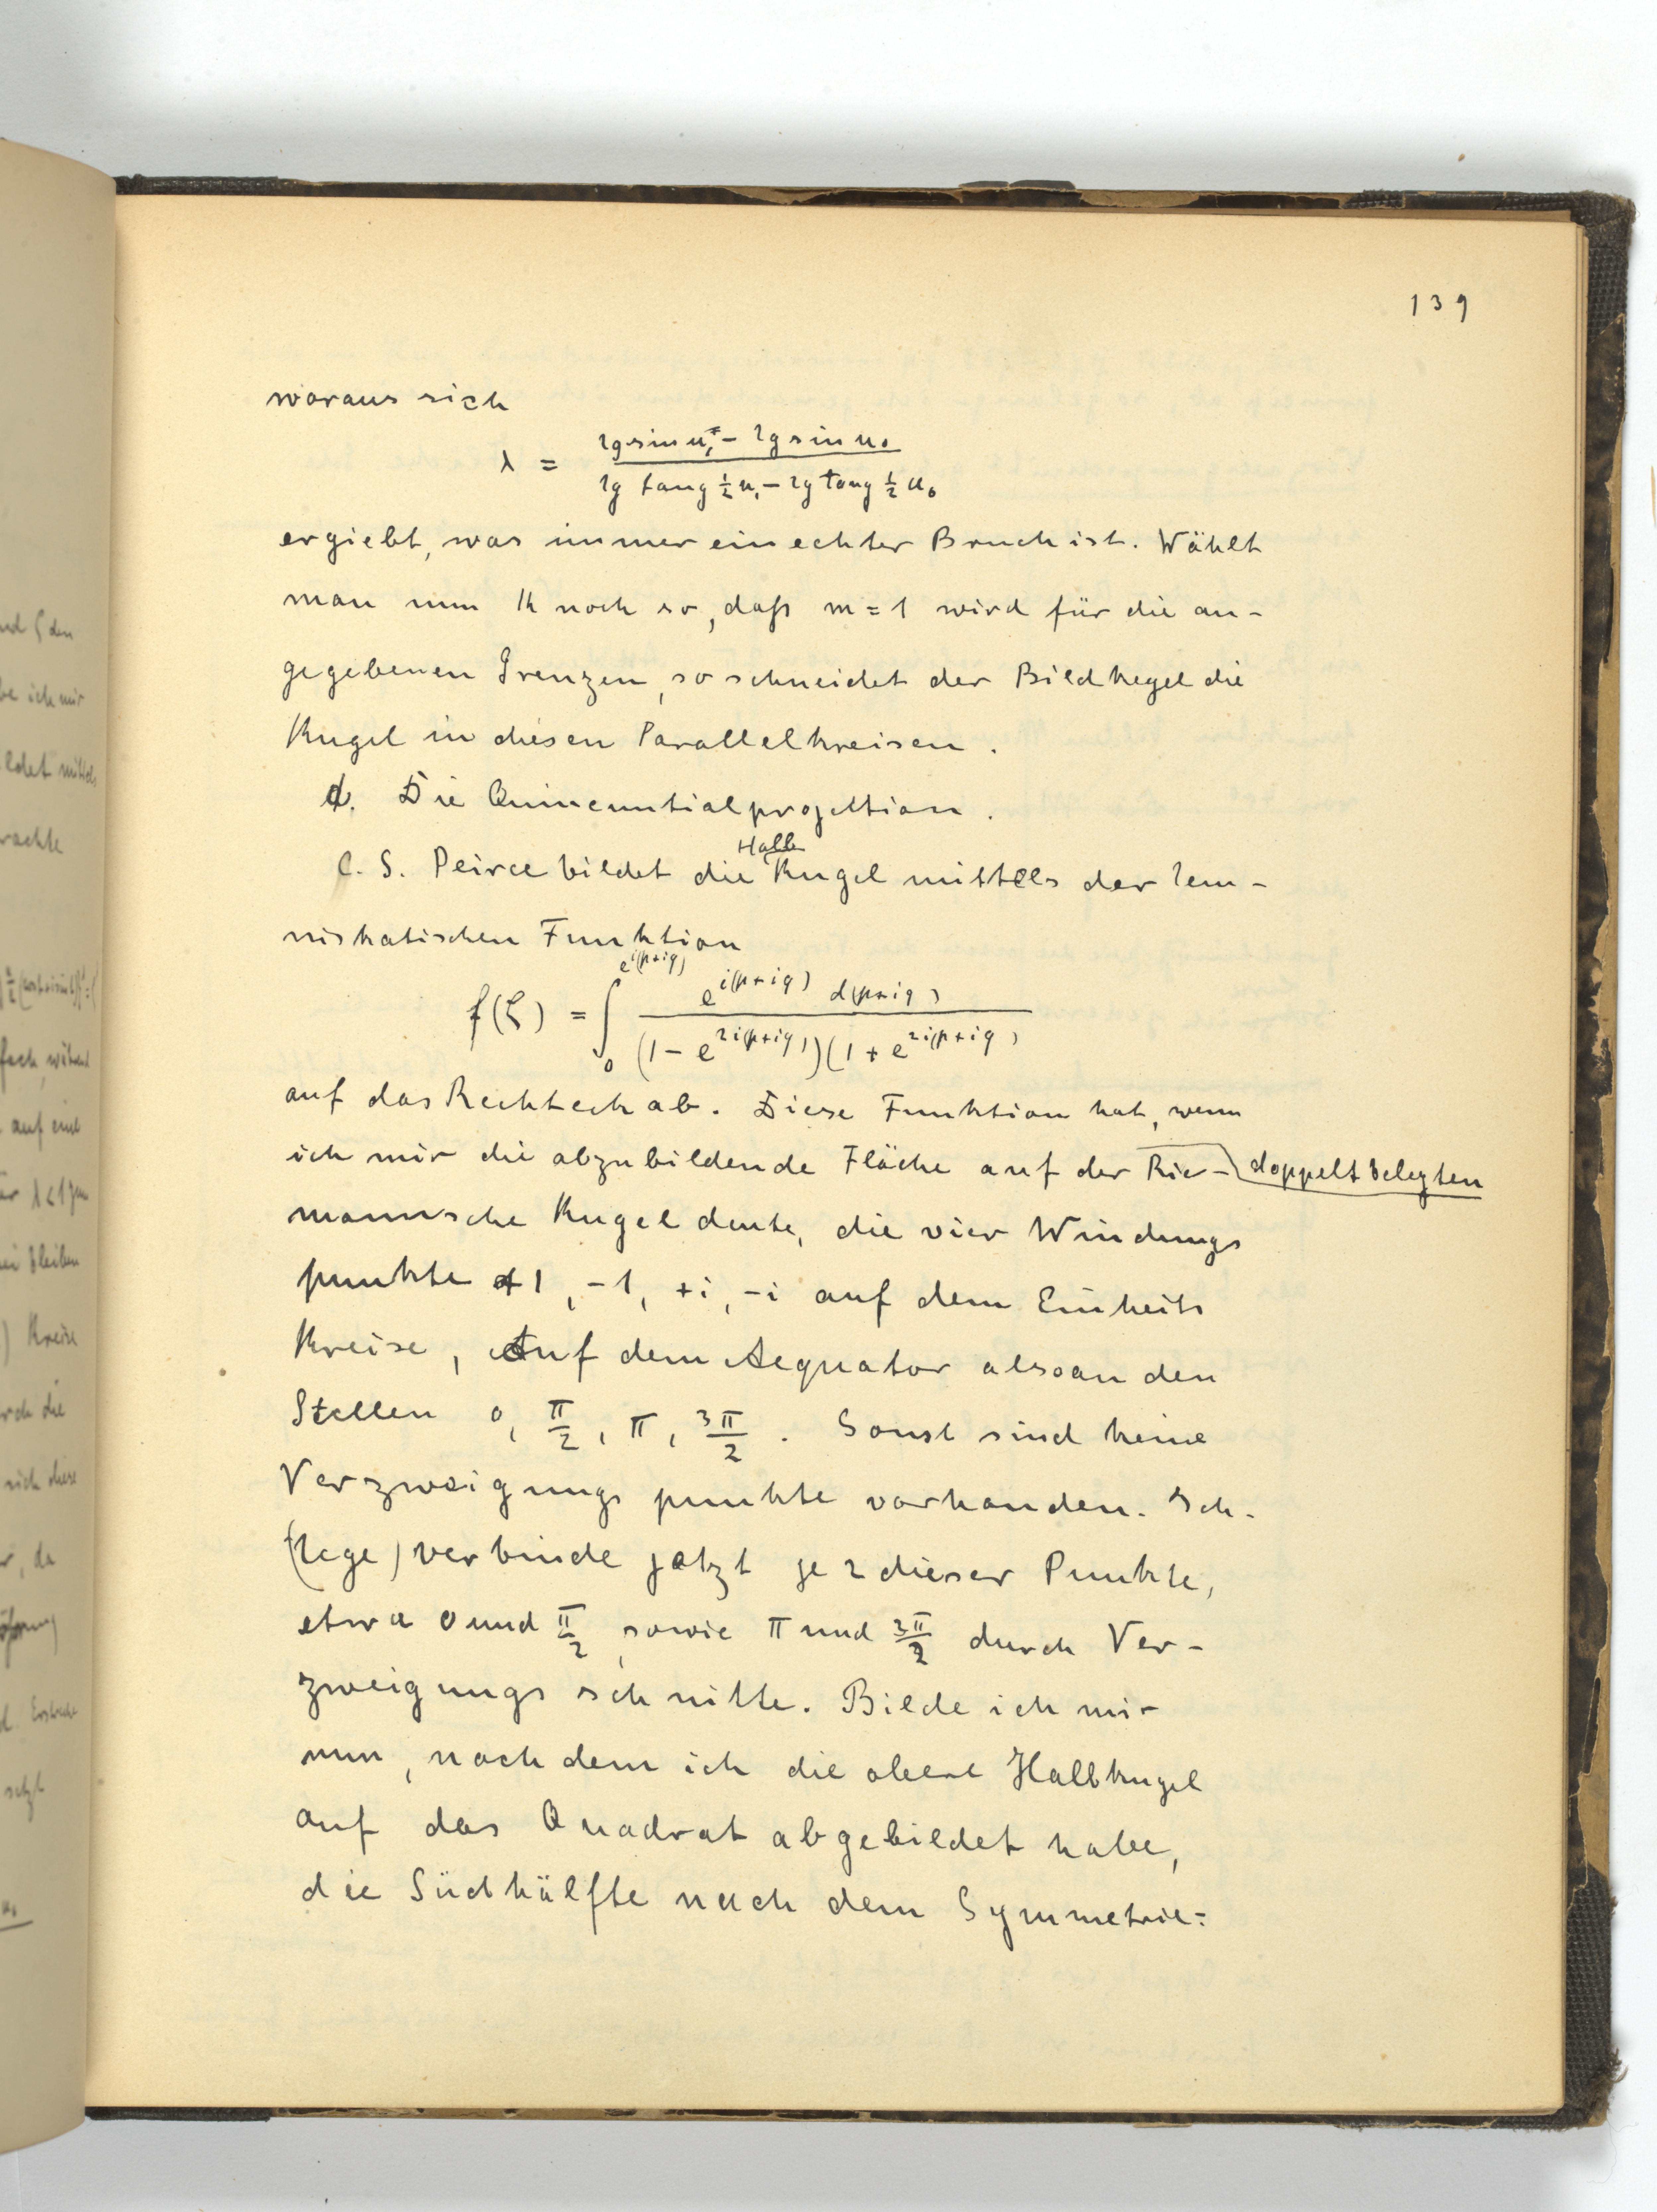 139
woraus sich
λ = (lg sin u₁ - lg sin u₀) / (lg tang ½ u₁ - lg tang ½ u₀)
ergiebt, was immer ein echter Bruch ist. Wählt
man nun k noch so, daß m = 1 wird für die an-
gegebenen Grenzen, so schneidet der Bildkegel die
Kugel in diesen Parallelkreisen.
d. Die Quincuntialprojektion.
Halb
C. S. Peirce bildet die Kugel mittels der lem-
niskatischen Funktion
f(ζ) = ∫₀^{e^{i(p+iq)}} e^{i(p+iq)} d(p+iq) / (1 - e^{2i(p+iq)})(1 + e^{2i(p+iq)})
auf das Rechteck ab. Diese Funktion hat, wenn
ich mir die abzubildende Fläche auf der Rie- doppelt belegten
mannsche Kugel deute, die vier Windungs
punkte +1, -1, +i, -i auf dem Einheits
kreise, auf dem Aequator also an den
Stellen 0, π/2, π, 3π/2. Sonst sind keine
Verzweigungs punkte vorhanden. Ich
(lege) verbinde jetzt je 2 dieser Punkte,
etwa 0 und π/2, sowie π und 3π/2 durch Ver-
zweigungs schnitte. Bilde ich mir
nun, nach dem ich die obere Halbkugel
auf das Quadrat abgebildet habe,
die Südhälfte nach dem Symmetrie-